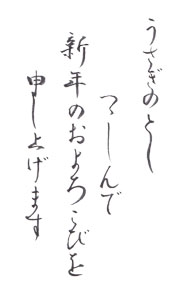 うさぎのとし
つゝしんで
新年のおよろこびを
申し上げます